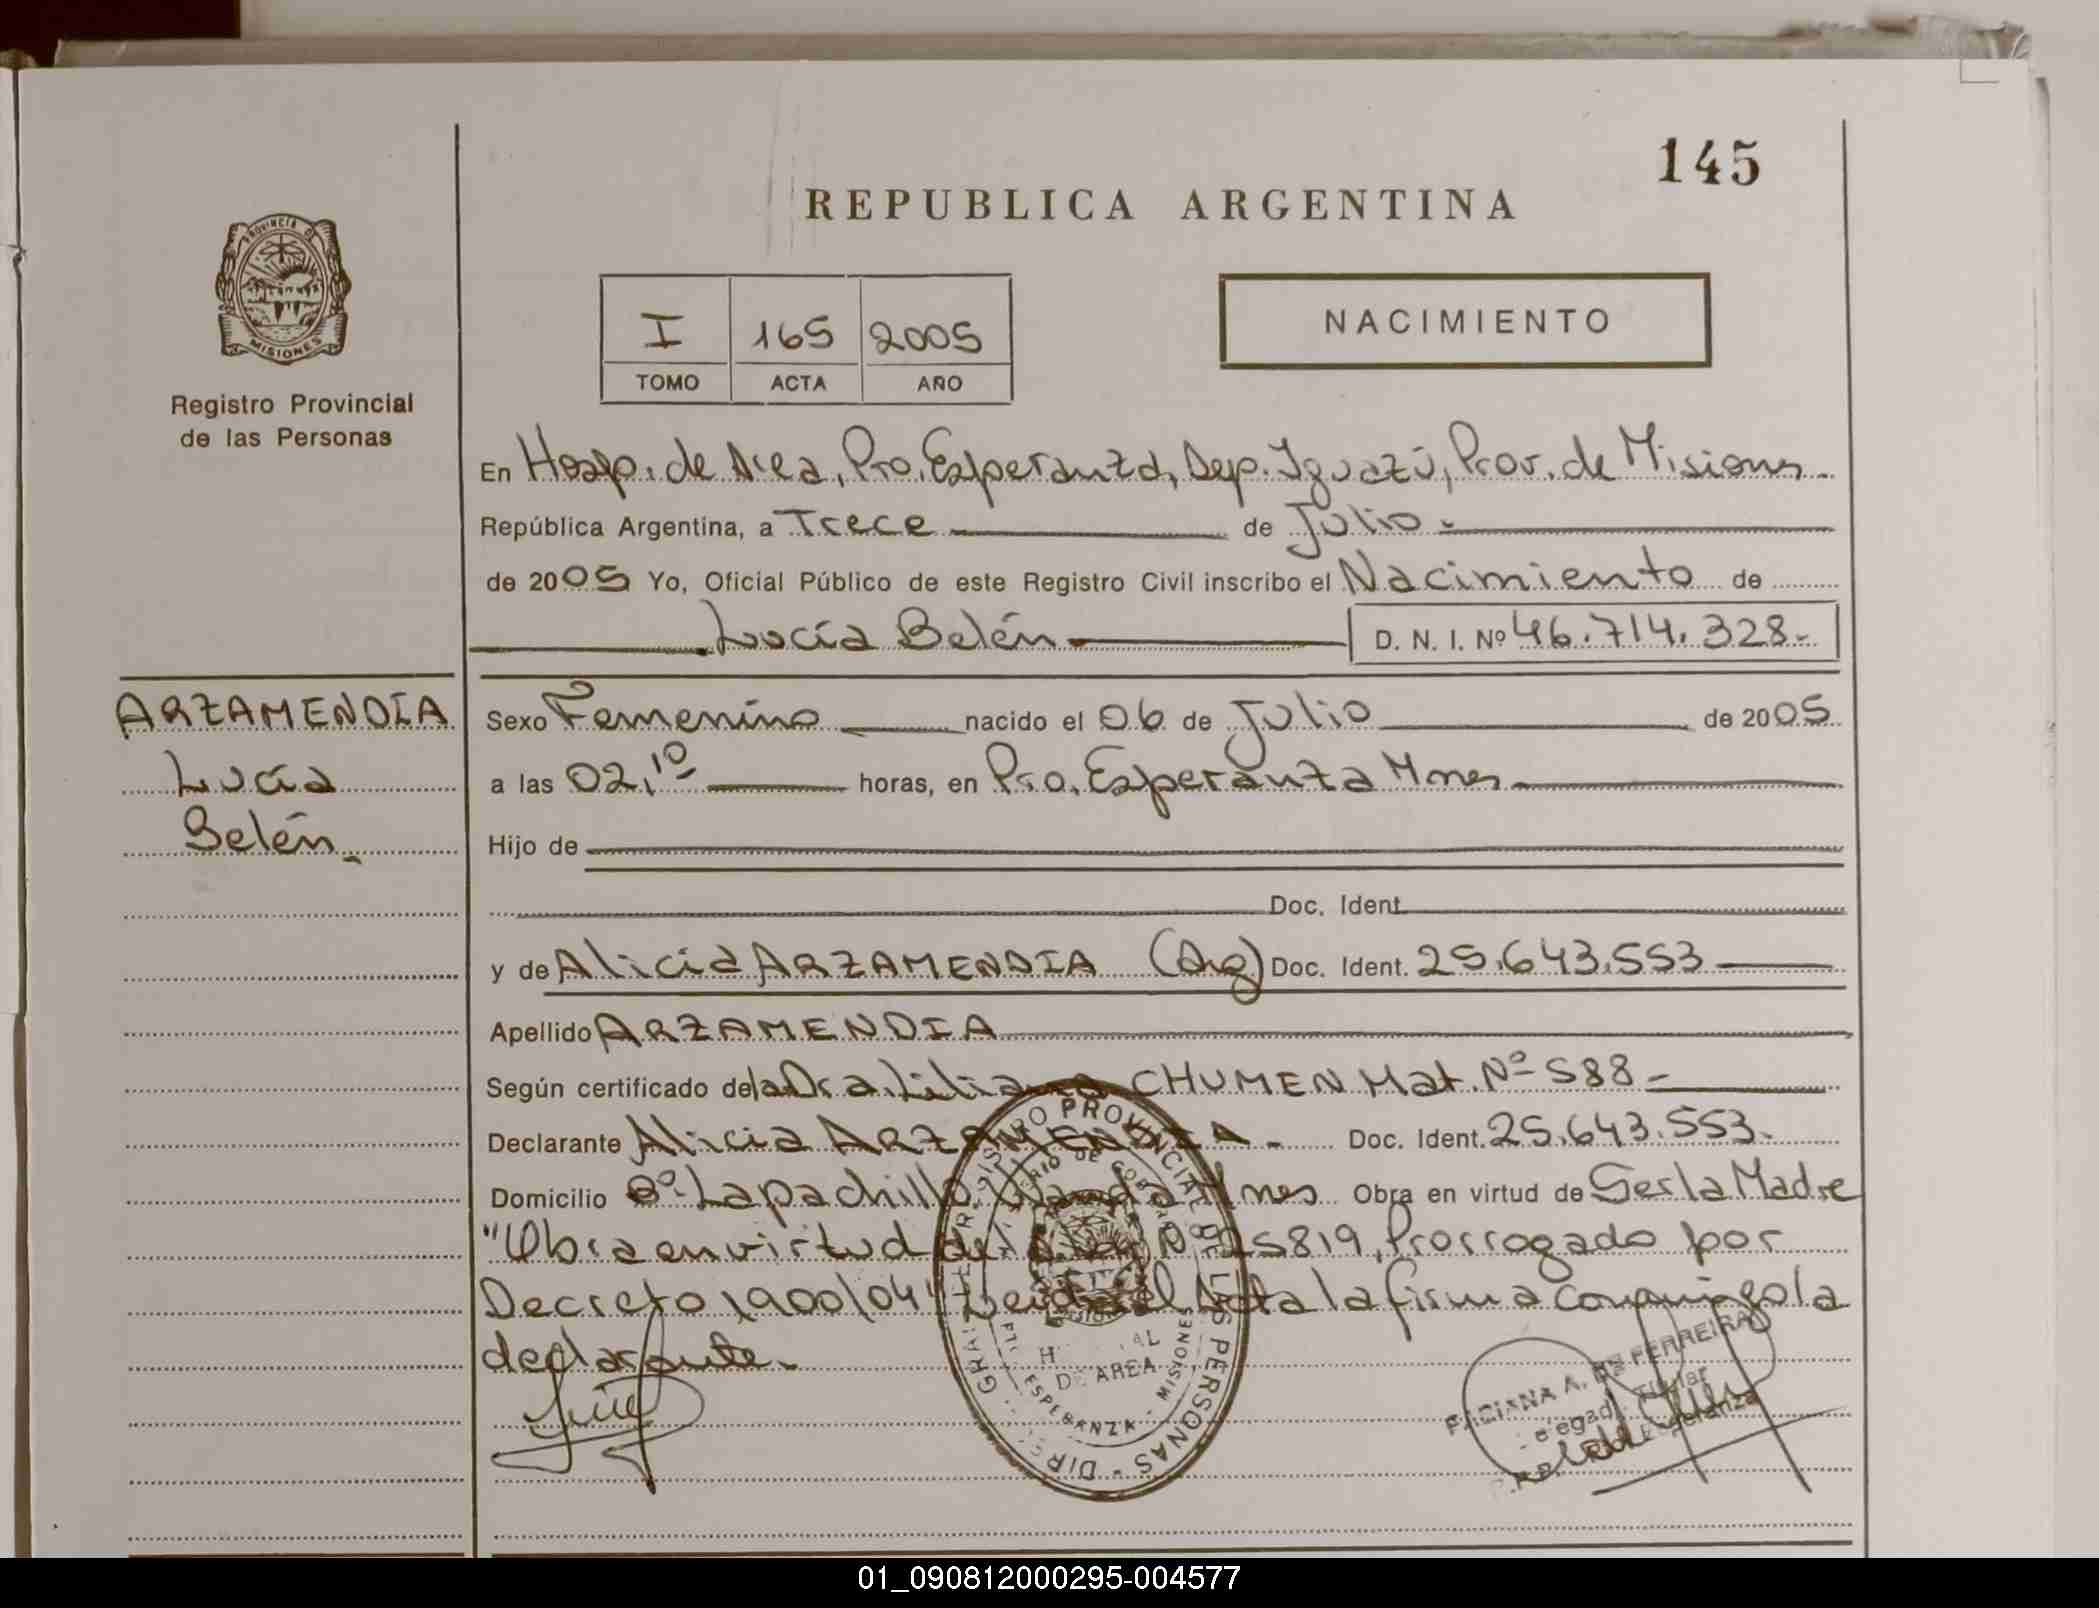 145
REPUBLICA ARGENTINA
PROVINCIA DE
MISIONES
Registro Provincial
de las Personas
I 165 2005
TOMO ACTA AÑO
NACIMIENTO
En Hosp. de Area, Pto. Esperanza, Dep. Iguazú, Prov. de Misiones
República Argentina, a Trece de Julio
de 2005 Yo, Oficial Público de este Registro Civil inscribo el Nacimiento de
Lucía Belén D. N. I. Nº 46.714.328.-
ARZAMENDIA
Lucía
Belén.
Sexo Femenino nacido el 06 de Julio de 2005
a las 02,10 horas, en Pto. Esperanza Mnes
Hijo de
Doc. Ident.
y de Alicia ARZAMENDIA (Arg) Doc. Ident. 25.643.553
Apellido ARZAMENDIA
Según certificado de la Dra. Liliana CHUMEN Mat. Nº 588-
Declarante Alicia ARZAMENDIA.- Doc. Ident. 25.643.553.
Domicilio Bº. Lapachillo Wanda Mnes Obra en virtud de Ser la Madre
"Obra en virtud del Nº 25819, Prorrogado por
Decreto 1900/04" Leida el Acta la firma conmigo la
declarante.
REGISTRO PROVINCIAL DE LAS PERSONAS - DIR. GRAL.
MINISTERIO DE GOBIERNO
DE AREA
ESPERANZA - MISIONES
A. DE FERREIRA
Titular
Esperanza
01_090812000295-004577